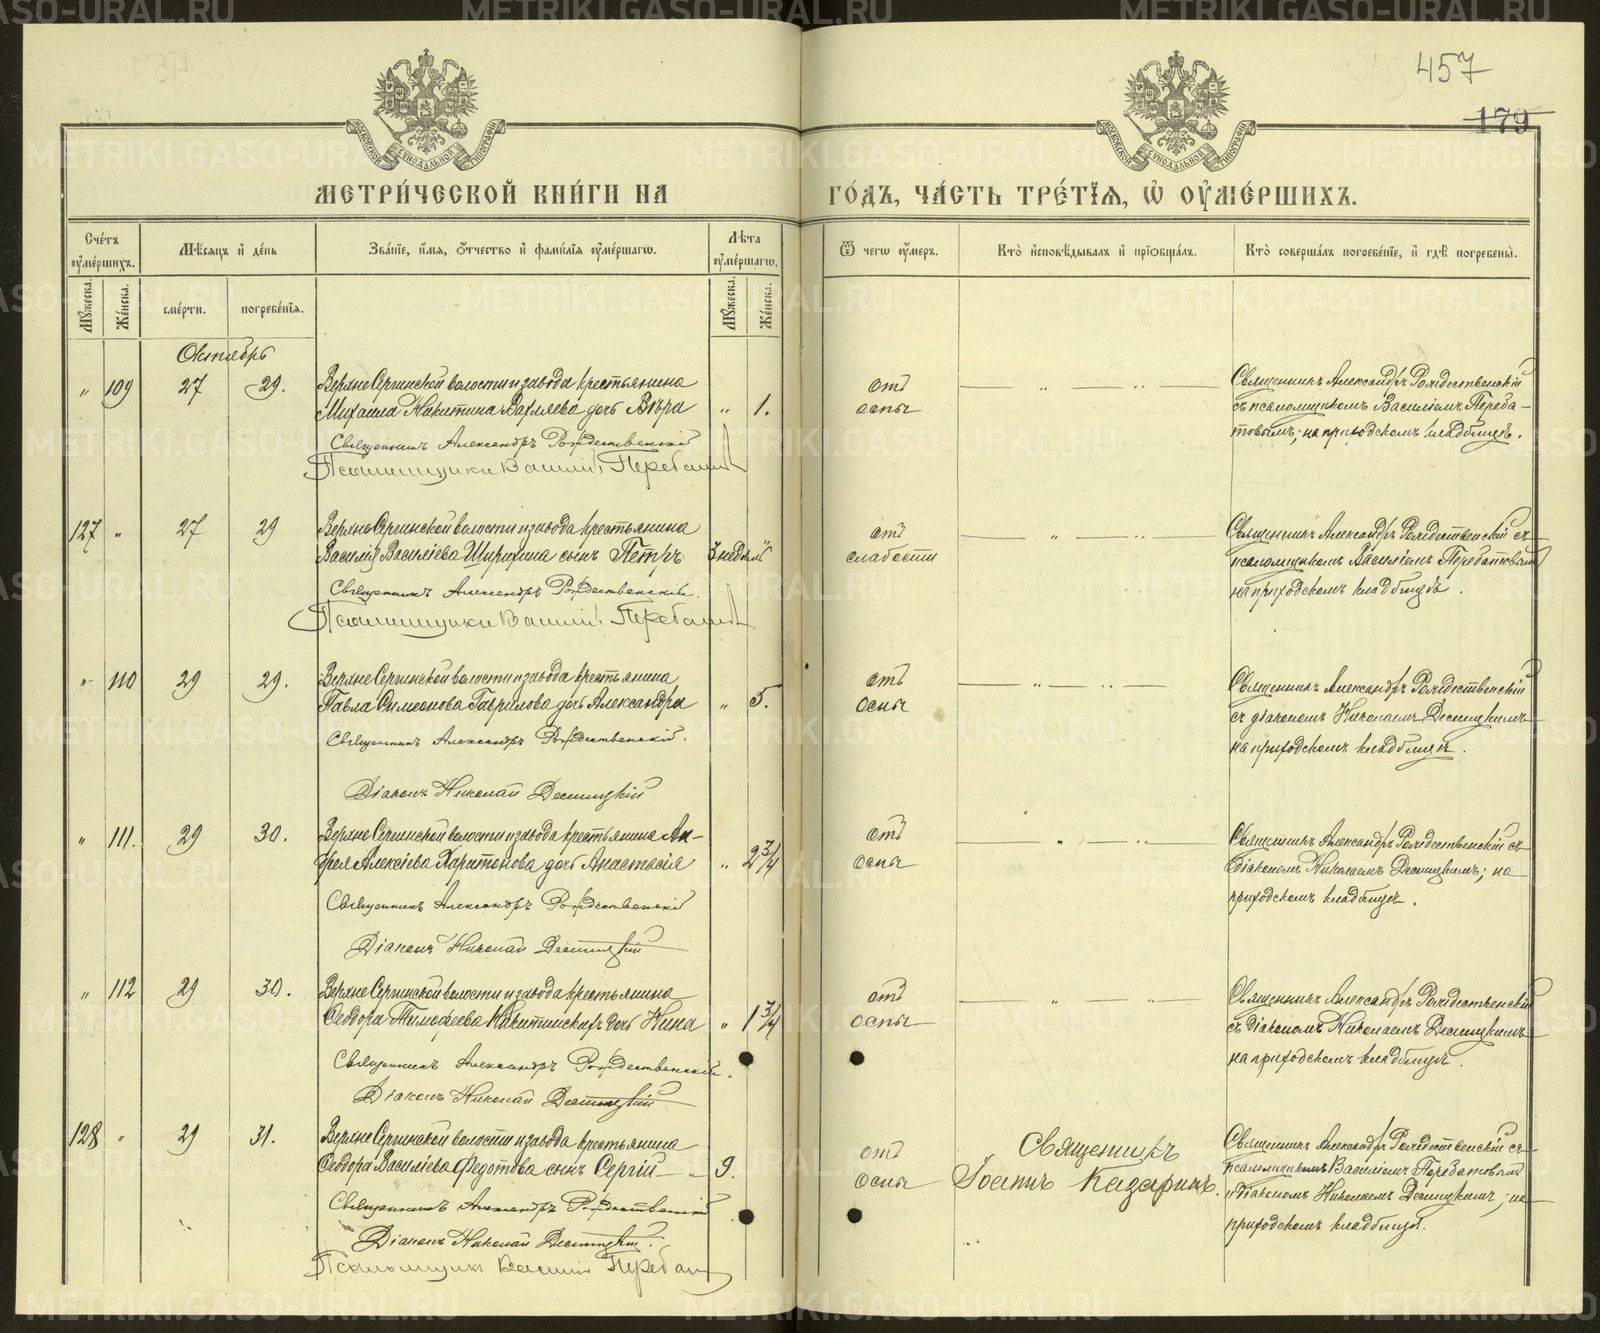 457
179
МОСКОВСКОЙ СѶНОДАЛЬНОЙ ТИПОГРАФІИ
МОСКОВСКОЙ СѶНОДАЛЬНОЙ ТИПОГРАФІИ
МЕТРИ́ЧЕСКОЙ КНИ́ГИ НА ГО́ДЪ, ЧА́СТЬ ТРЕ́ТІѦ, Ѡ҆ ОУ҆МЕ́РШИХЪ.
Сче́тъ оу҆ме́ршихъ.
Мѣ́сѧцъ и҆ де́нь
Зва́нїе, и҆́мѧ, ѻ҆́тчество и҆ фами́лїѧ оу҆ме́ршагѡ.
Лѣ́та оу҆ме́ршагѡ.
Ѿ чегѡ̀ оу҆́меръ.
Кто̀ и҆сповѣ́дывалъ и҆ прїѻбща́лъ.
Кто̀ соверша́лъ погребе́нїе, и҆ гдѣ̀ погребены̀.
Мꙋ́жеска.
Же́нска.
сме́рти.
погребе́нїѧ.
Мꙋ́жеска.
Же́нска.
Октябрь
" 109 27 29. Верхне Сергинской волости и завода крестьянина
Михаила Никитина Вахляева дочь Вѣра " 1.
Священникъ Александръ Рождественскій
Псаломщикъ Василій Перебат
отъ
оспы
Священникъ Александръ Рождественскій
съ псаломщикомъ Василіемъ Переба-
товымъ; на приходскомъ кладбищѣ.
127 " 27 29 Верхне Сергинской волости и завода крестьянина
Василія Василіева Ширихина сынъ Петръ 3 недѣли "
Священникъ Александръ Рождественскій.
Псаломщикъ Василій Перебат
отъ
слабости
Священникъ Александръ Рождественскій съ
псаломщикомъ Василіемъ Перебатовымъ
на приходскомъ кладбищѣ.
" 110 29 29. Верхне Сергинской волости и завода крестьянина
Павла Симеонова Гаврилова дочь Александра " 5.
Священникъ Александръ Рождественскій.
Діаконъ Николай Десницкій
отъ
оспы
Священникъ Александръ Рождественскій
съ діакономъ Николаемъ Десницкимъ
на приходскомъ кладбищѣ.
" 111. 29 30. Верхне Сергинской волости и завода крестьянина Ан-
дрея Алексіева Харитонова дочь Анастасія " 2 3/4
Священникъ Александръ Рождественскій
Діаконъ Николай Десницкій
отъ
оспы
Священникъ Александръ Рождественскій съ
діакономъ Николаемъ Десницкимъ; на
приходскомъ кладбищѣ.
" 112 29 30. Верхне Сергинской волости и завода крестьянина
Ѳеодора Тимоѳеева дочь Нина " 1 3/4
Священникъ Александръ Рождественскій.
Діаконъ Николай Десницкій
отъ
оспы
Священникъ Александръ Рождественскій
съ діакономъ Николаемъ Десницкимъ
на приходскомъ кладбищѣ.
128 " 29 31. Верхне Сергинской волости и завода крестьянина
Ѳеодора Василіева Федотова сынъ Сергій 9.
Священникъ Александръ Рождественскій
Діаконъ Николай Десницкій.
Псаломщикъ Василій Перебат
отъ
оспы
Священникъ
Іоаннъ Казаринъ.
Священникъ Александръ Рождественскій съ
псаломщикомъ Василіемъ Перебатовымъ
и діакономъ Николаемъ Десницкимъ; на
приходскомъ кладбищѣ.
METRIKI.GASO-URAL.RU